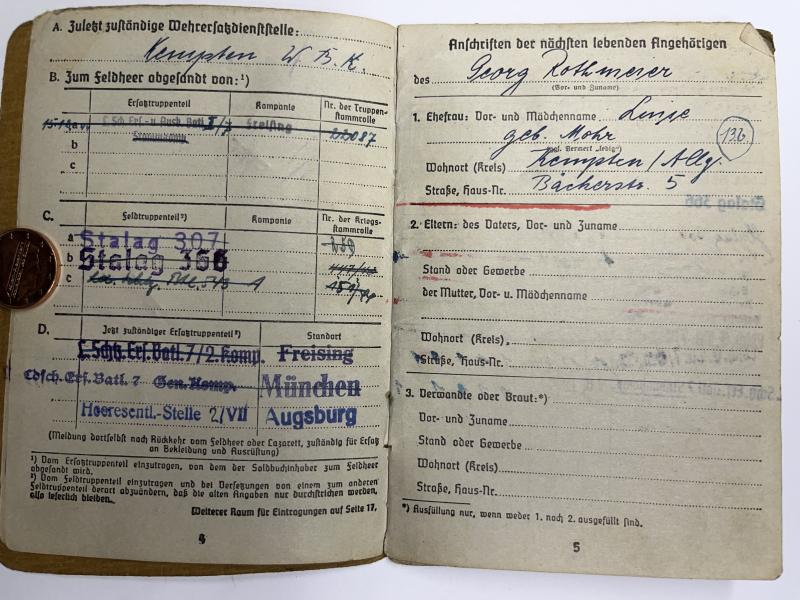 A. Zuletzt zuständige Wehrersatzdienststelle:
Kempten W. B. K.
B. Zum Feldheer abgesandt von:¹)
Ersatztruppenteil
Kompanie
Nr. der Truppenstammrolle
a L. Sch. Ers.- u. Ausb. Batl. I/7 Freising 22087
b
c
C. Feldtruppenteil²)
Kompanie
Nr. der Kriegsstammrolle
a Stalag 307
b Stalag 366
c
D. Jetzt zuständiger Ersatztruppenteil²)
Standort
L. Schtz. Ers. Batl. 7/2. Komp. Freising
Ldsch. Ers. Batl. 7 Gen. Komp. München
Heeresentl.-Stelle 2/VII Augsburg
(Meldung dortselbst nach Rückkehr vom Feldheer oder Lazarett, zuständig für Ersatz
an Bekleidung und Ausrüstung)
¹) Vom Ersatztruppenteil einzutragen, von dem der Soldbuchinhaber zum Feldheer
abgesandt wird.
²) Vom Feldtruppenteil einzutragen und bei Versetzungen von einem zum anderen
Feldtruppenteil derart abzuändern, daß die alten Angaben nur durchstrichen werden,
also leserlich bleiben.
Weiterer Raum für Eintragungen auf Seite 17.
4
Anschriften der nächsten lebenden Angehörigen
des Georg Rothmeier
(Vor- und Zuname)
1. Ehefrau: Vor- und Mädchenname Luise
geb. Mohr
136
(ggf. Vermerk „ledig")
Wohnort (Kreis) Kempten/Allg.
Straße, Haus-Nr. Bäckerstr. 5
2. Eltern: des Vaters, Vor- und Zuname
Stand oder Gewerbe
der Mutter, Vor- u. Mädchenname
Wohnort (Kreis)
Straße, Haus-Nr.
3. Verwandte oder Braut:*)
Vor- und Zuname
Stand oder Gewerbe
Wohnort (Kreis)
Straße, Haus-Nr.
*) Ausfüllung nur, wenn weder 1. noch 2. ausgefüllt sind.
5